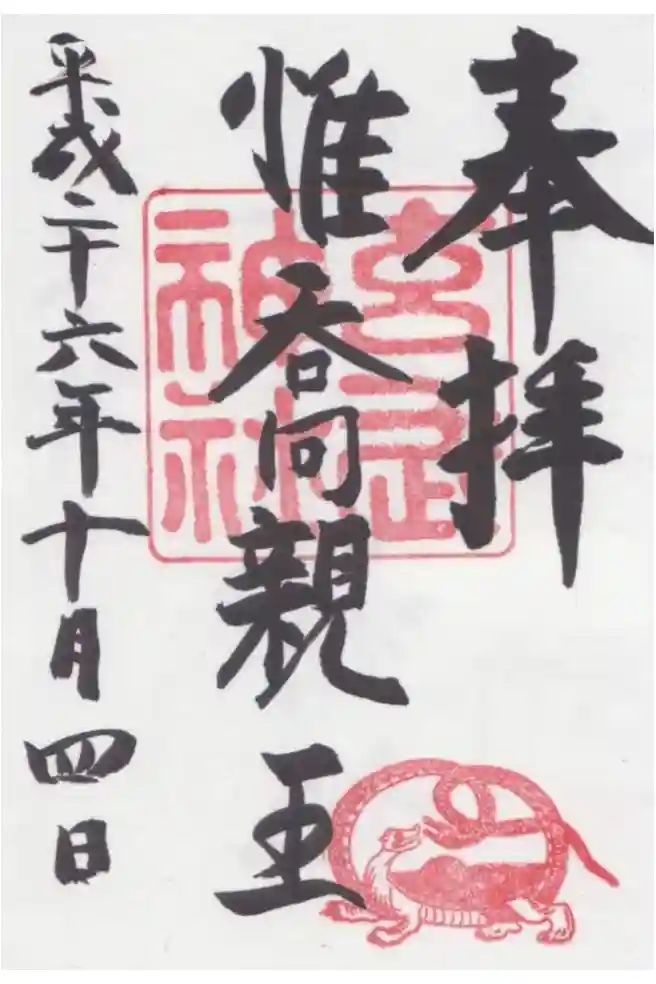 奉拝
惟喬親王
平成二十六年十月四日
玄武
神社